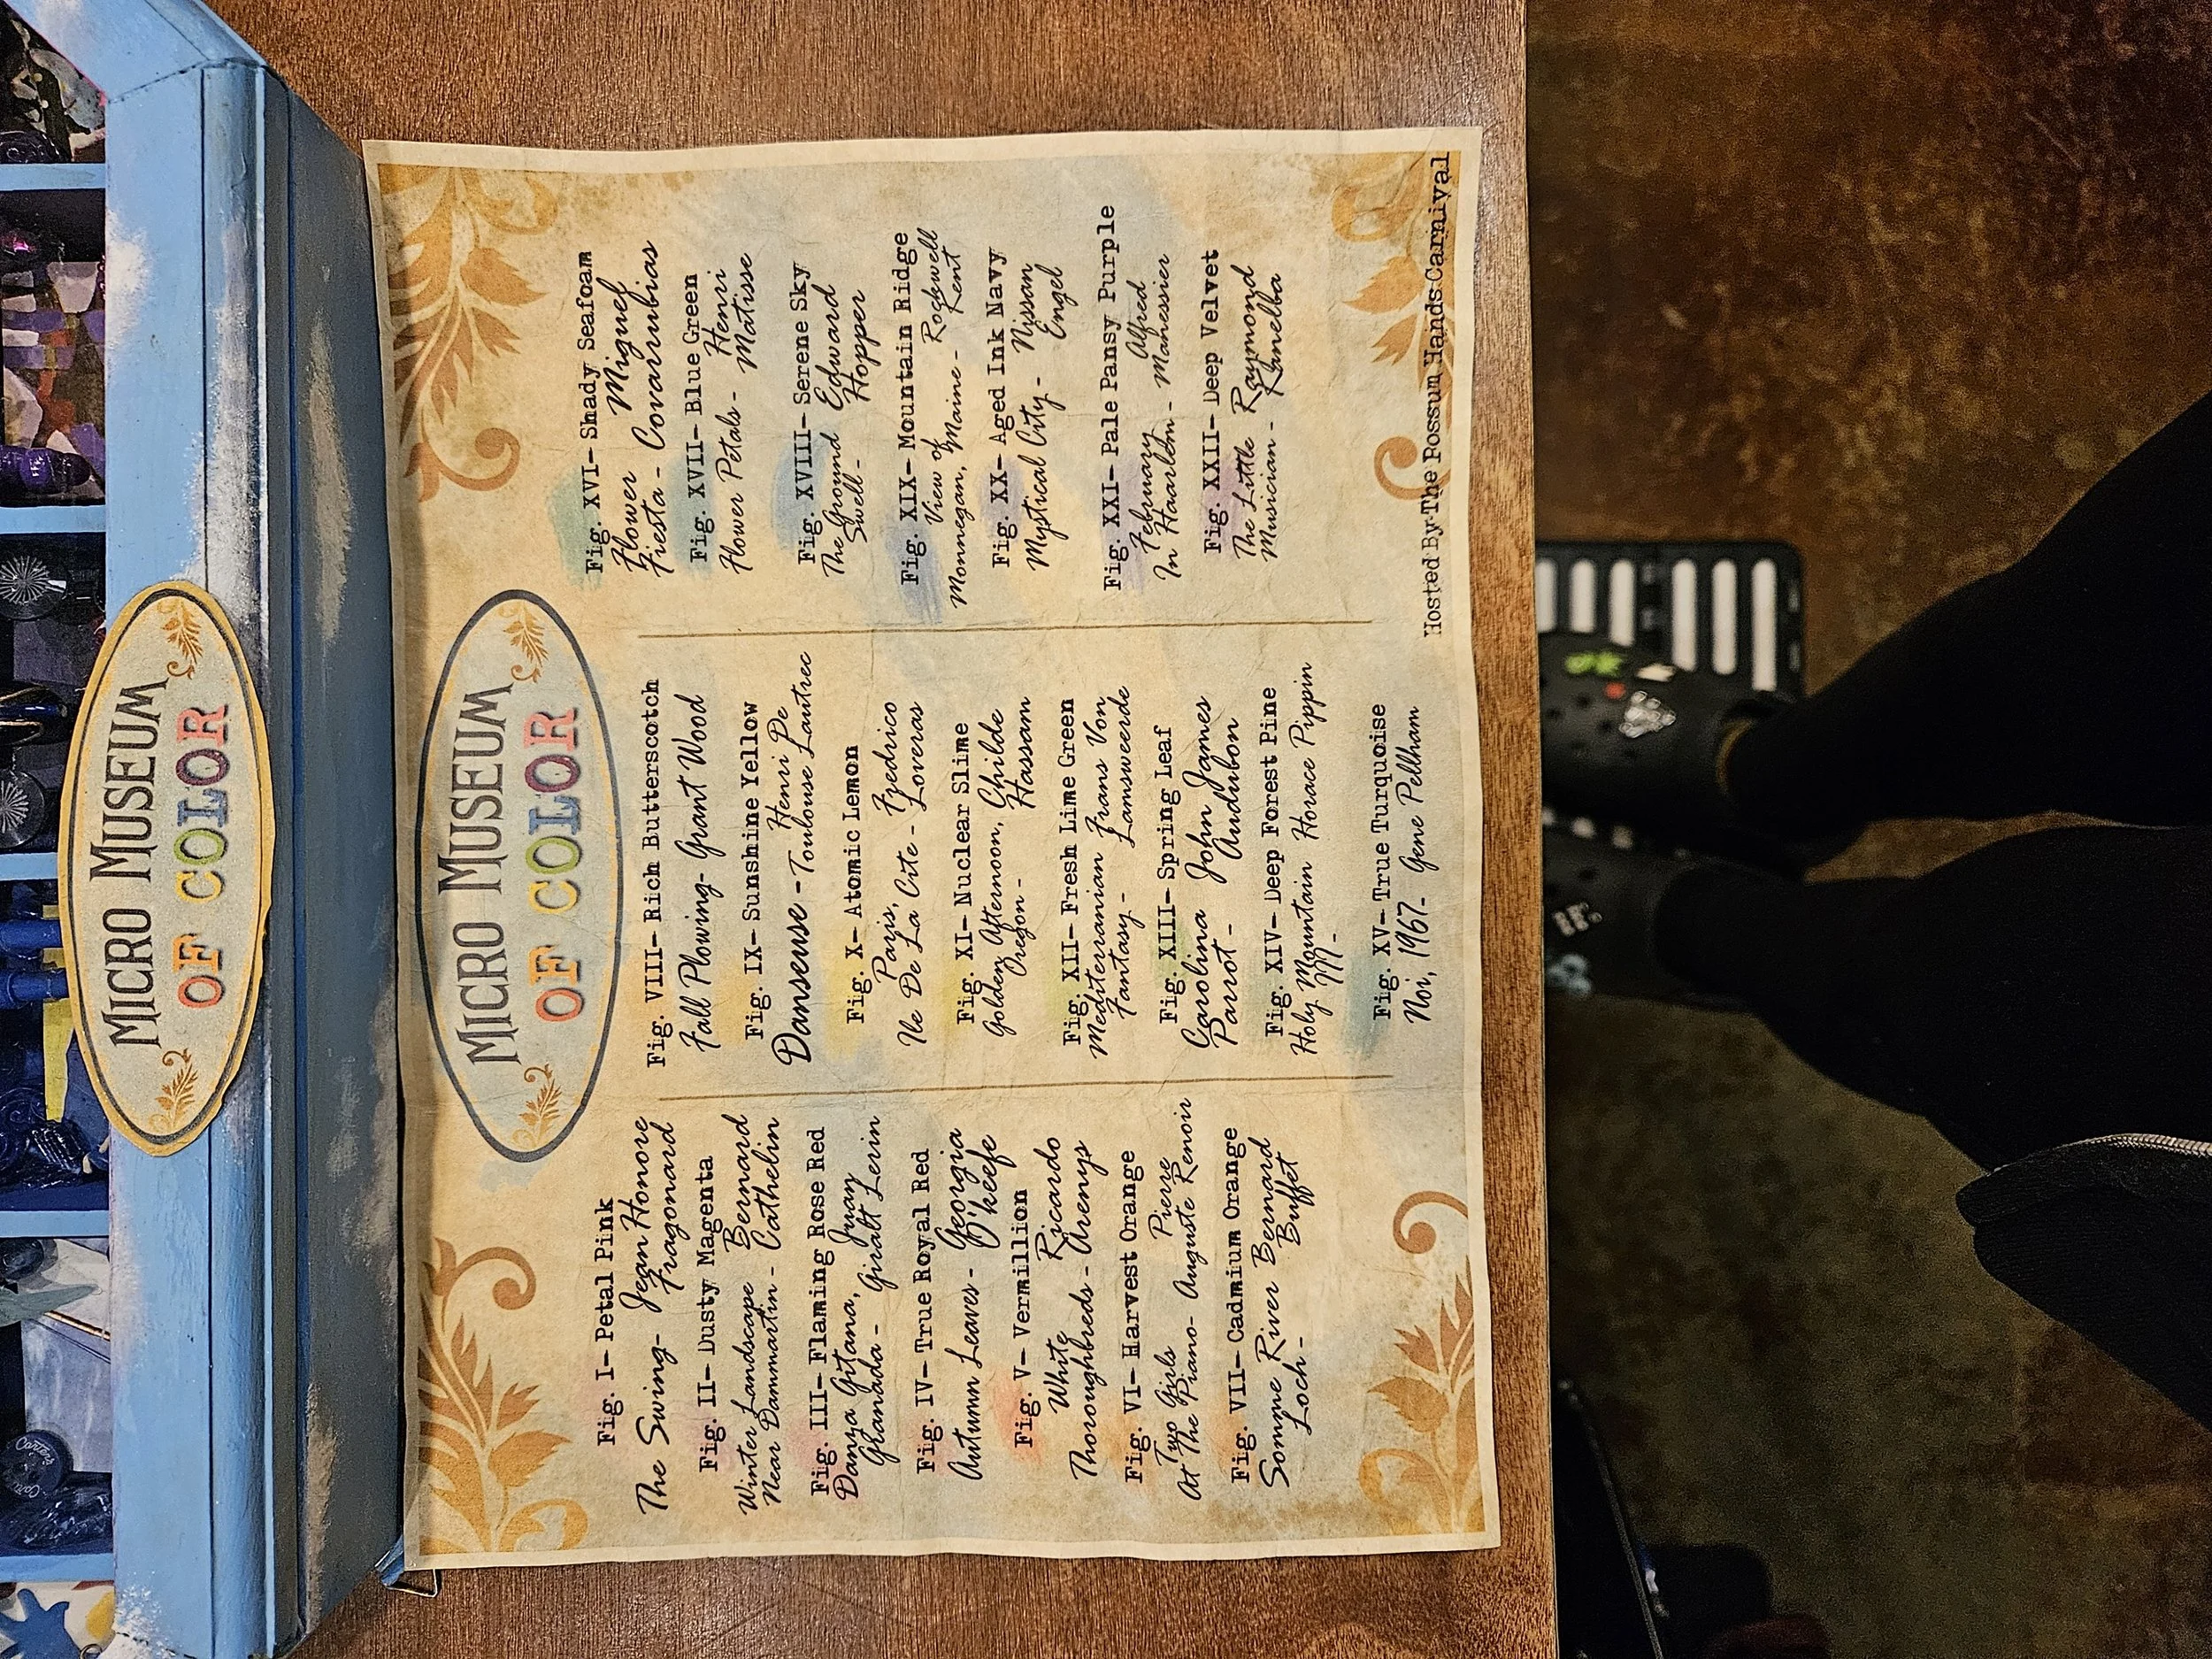 MICRO MUSEUM
OF COLOR
MICRO MUSEUM
OF COLOR
Fig. I- Petal Pink
The Swing- Jean Honore
Fragonard
Fig. II- Dusty Magenta
Winter Landscape Bernard
Near Dammartin - Cathelin
Fig. III- Flaming Rose Red
Danza Gitana, Juan
Granada - Giralt Lerin
Fig. IV- True Royal Red
Autumn Leaves - Georgia
O'keefe
Fig. V- Vermillion
White Ricardo
Thoroughbreds - Arenys
Fig. VI- Harvest Orange
Two Girls Pierre
At The Piano- Auguste Renoir
Fig. VII- Cadmium Orange
Somme River Bernard
Loch - Buffet
Fig. VIII- Rich Butterscotch
Fall Plowing- Grant Wood
Fig. IX- Sunshine Yellow
Henri De
Danseuse - Toulouse Lautrec
Fig. X- Atomic Lemon
Paris, Fredrico
Ile De La Cite - Loveras
Fig. XI- Nuclear Slime
Golden Afternoon, Childe
Oregon - Hassam
Fig. XII- Fresh Lime Green
Mediterranian Frans Von
Fantasy - Lamsweerde
Fig. XIII- Spring Leaf
Carolina John James
Parrot - Audubon
Fig. XIV- Deep Forest Pine
Holy Mountain Horace Pippin
III -
Fig. XV- True Turquoise
Noi, 1967- Gene Pellham
Fig. XVI- Shady Seafoam
Flower Miguel
Fiesta - Covarrubias
Fig. XVII- Blue Green
Henri
Flower Petals - Matisse
Fig. XVIII- Serene Sky
The Ground Edward
Swell - Hopper
Fig. XIX- Mountain Ridge
View of Rockwell
Monhegan, Maine - Kent
Fig. XX- Aged Ink Navy
Nissan
Mystical City - Engel
Fig. XXI- Pale Pansy Purple
February Alfred
In Haarlem - Manessier
Fig. XXII- Deep Velvet
The Little Raymond
Musician - Kanelba
Hosted By The Possum Hands Carnival
Carter's